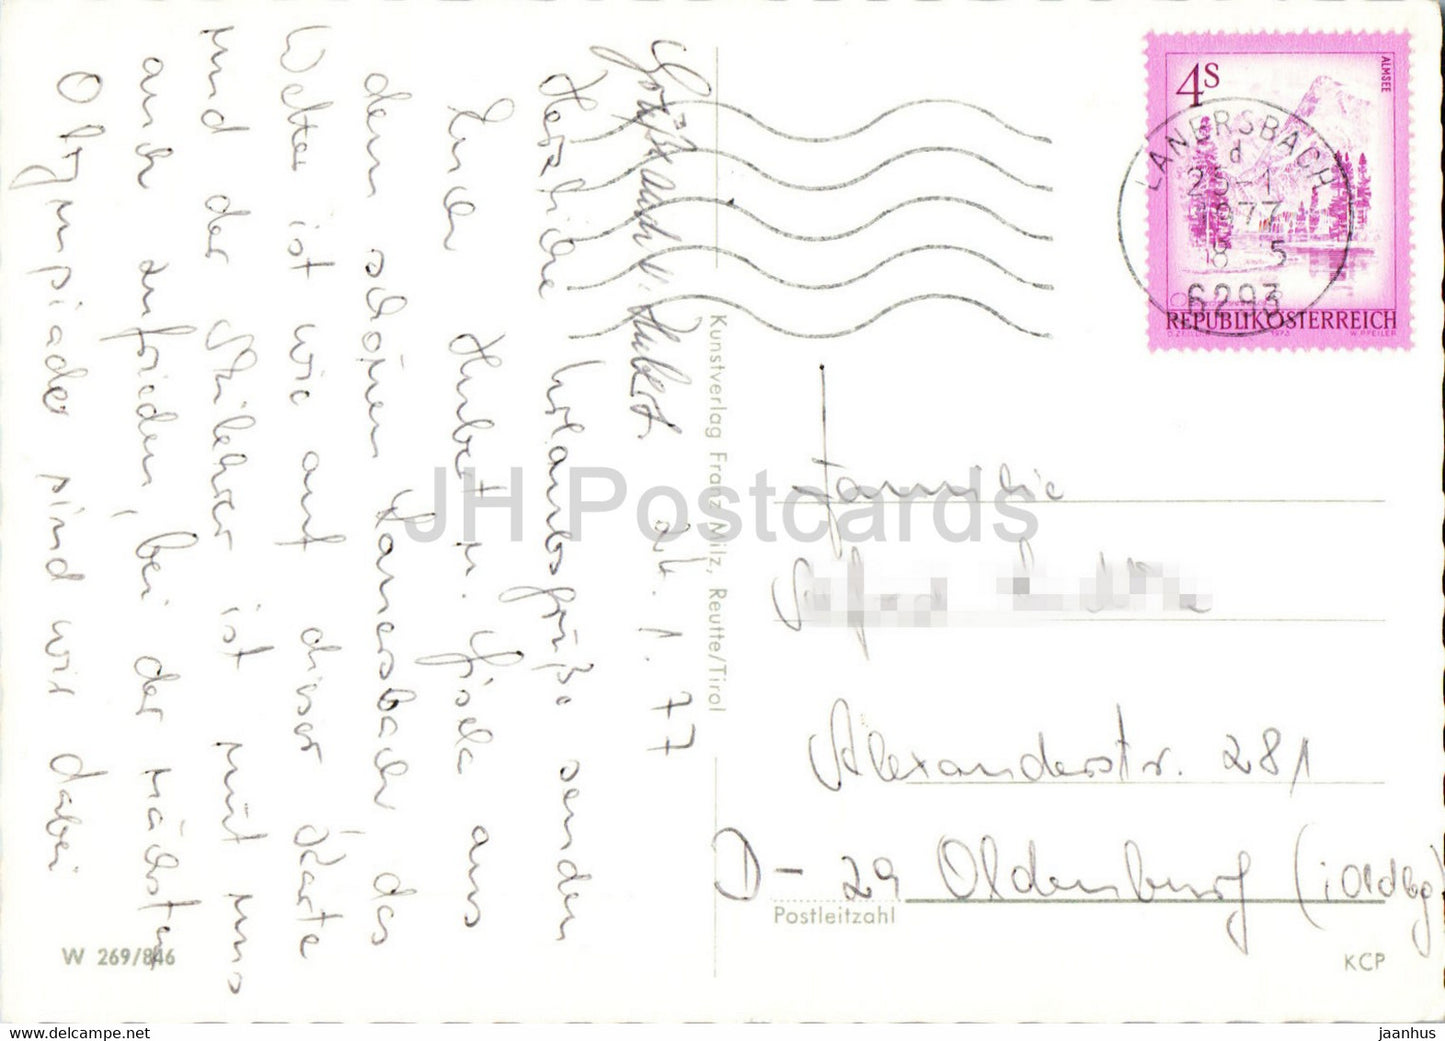 24. 1. 77
Herzliche Urlaubsgrüße senden
Euch Hubert u. Gisela aus
dem schönen Lanersbach das
Wetter ist wie auf dieser Karte
und der Skilehrer ist mit uns
auch zufrieden, bei der nächsten
Olympiade sind wir dabei
Hubert.
Kunstverlag Franz Milz, Reutte/Tirol
W 269/846
4S
ALMSEE
REPUBLIK ÖSTERREICH
1973
W. PFEILER
LANERSBACH
d
1977
6293
Familie
Alexanderstr. 281
D - 29 Oldenburg (i Oldbg)
Postleitzahl
KCP
JH Postcards
https://www.ecmre.com
jaanhus